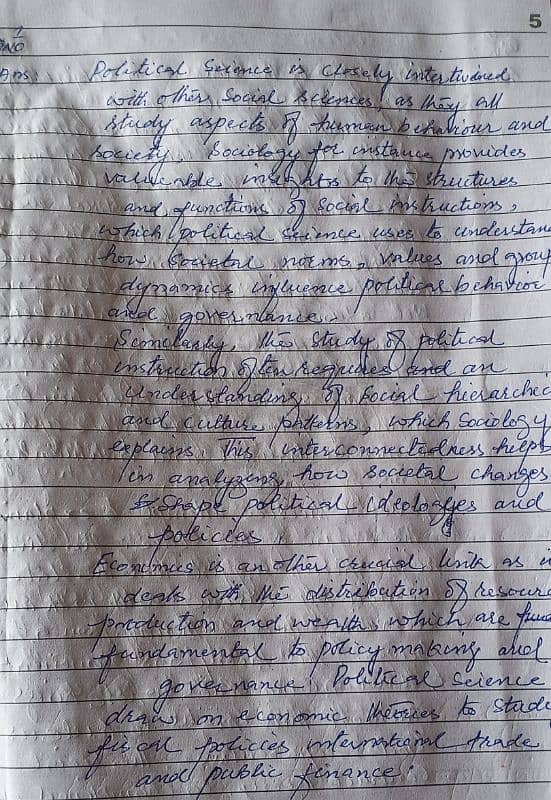 5
?
NO
Ans: Political Science is closely intertwined
with other social sciences, as they all
study aspects of human behaviour and
society. Sociology for instance provides
valueable insights to the structures
and functions of social instructions,
which political science uses to understand
how societal norms, values and group
dynamics influence political behavior
and governance.
Similarly, the study of political
instruction often requires and an
understanding of social hierarchie
and culture patterns, which sociology
explains. This interconnectedness helps
in analyzing how societal changes
shape political ideologyes and
policies.
Economics is an other crucial link as i
deals with the distribution of resourc
production and wealth, which are fund
fundamental to policy making and
governance. Political Science
draw on economic theories to stude
fiscal policies, international trade
and public finance.